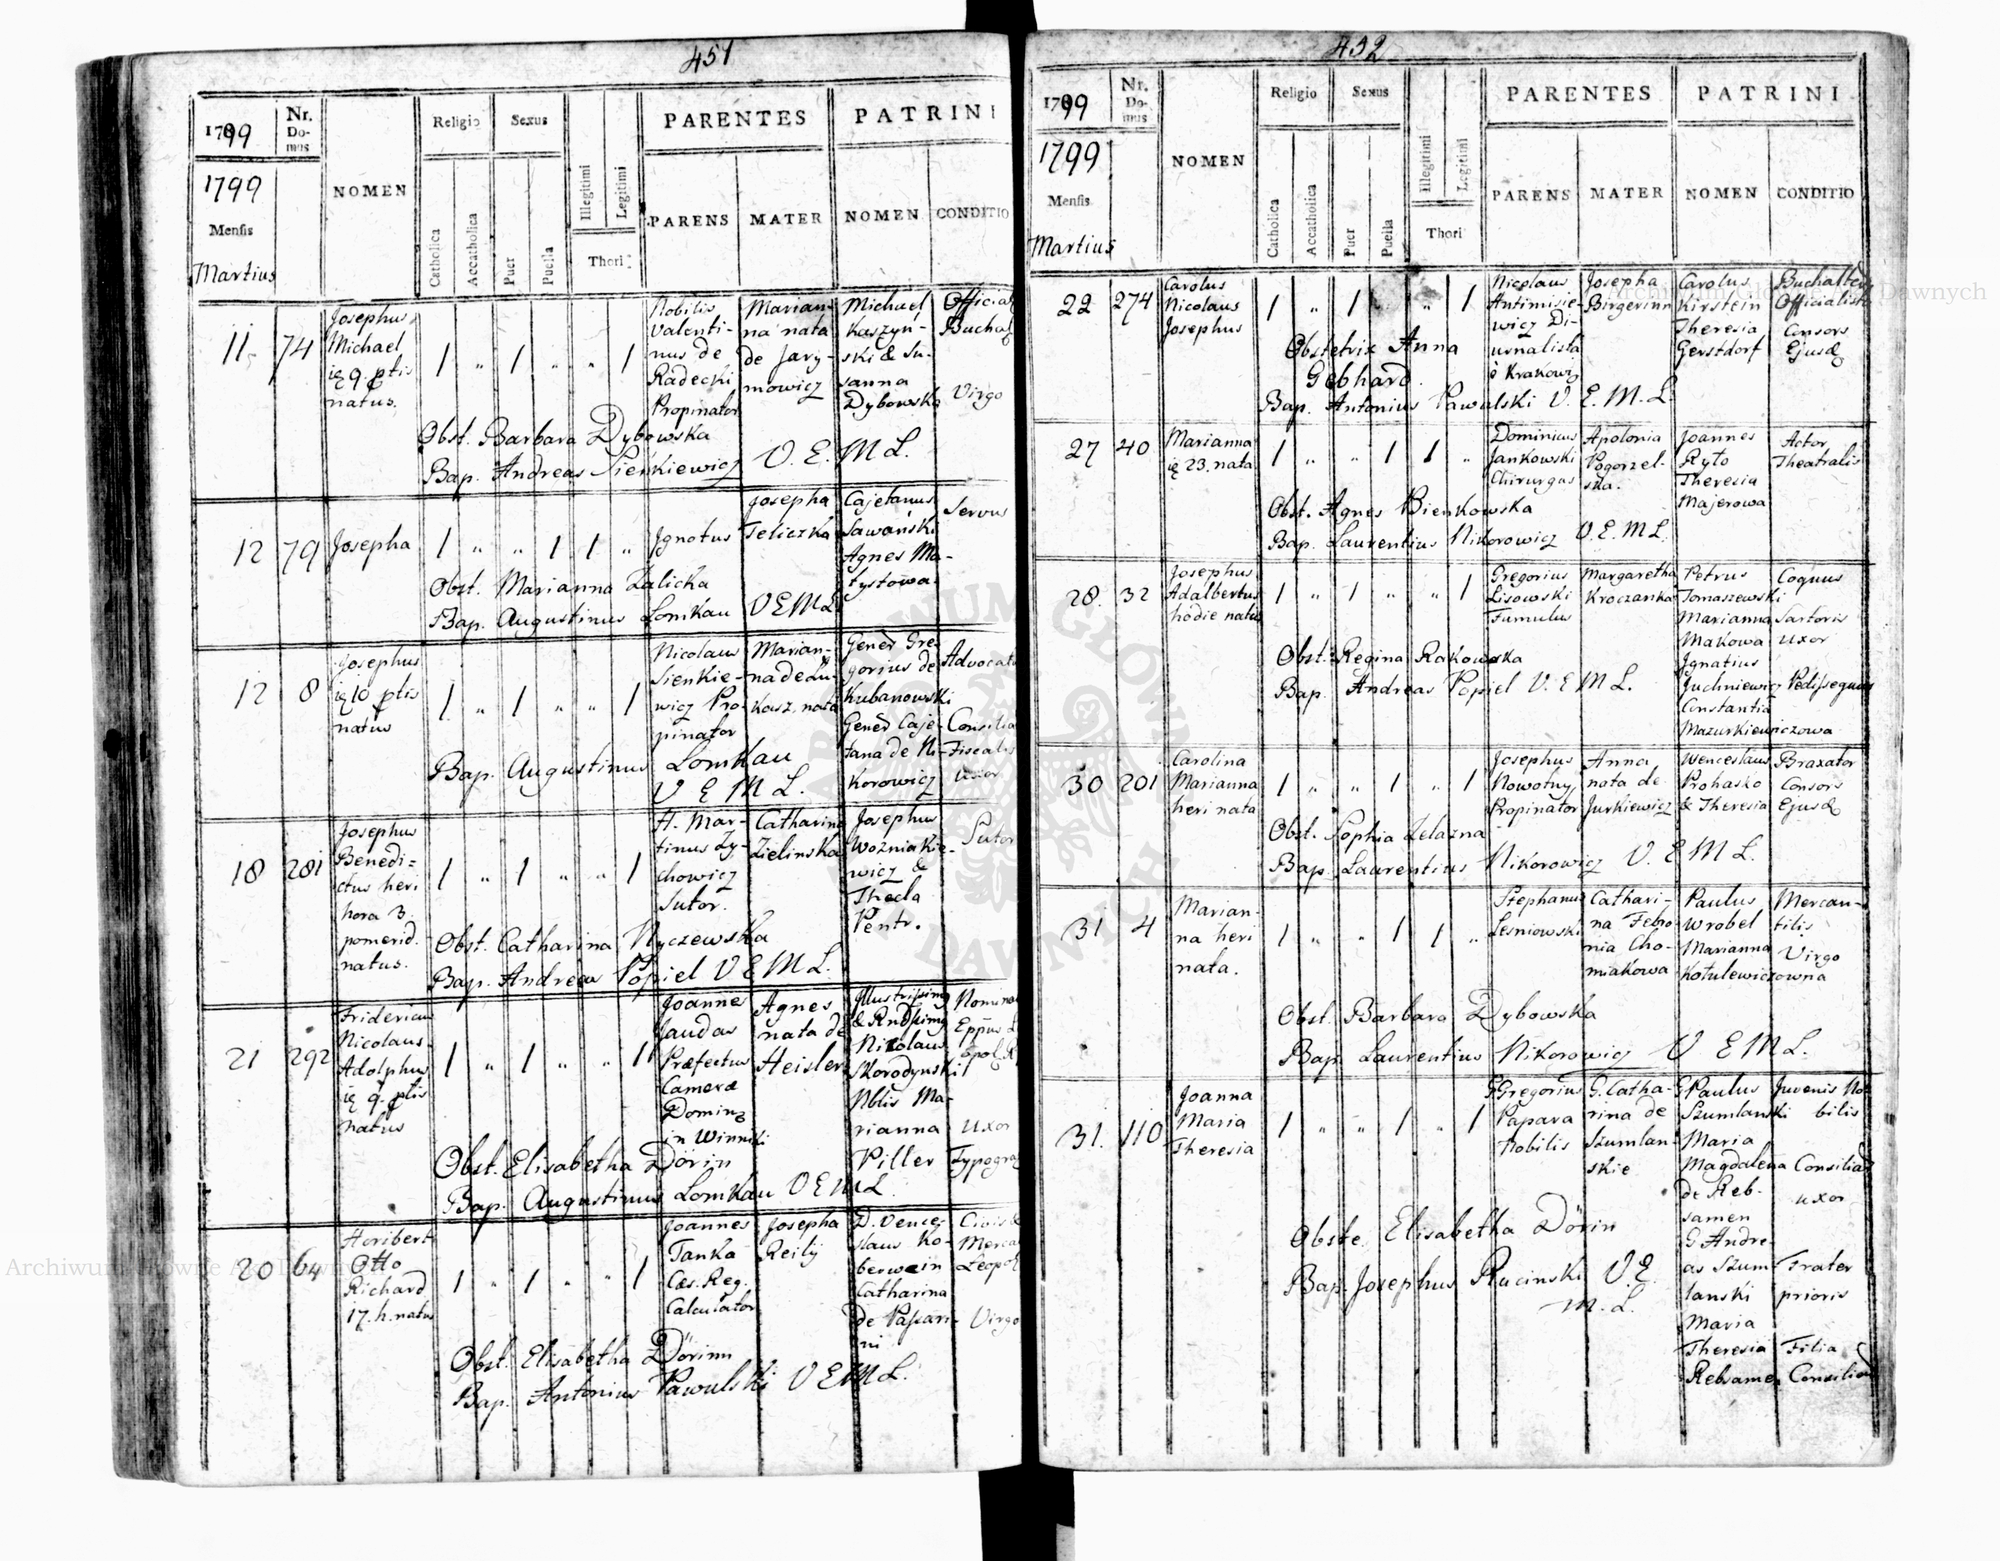 451
1799
Nr. Domus
NOMEN
Religio
Sexus
PARENTES
PATRINI
1799
Mensis
Martius
Catholica
Accatholica
Puer
Puella
Illegitimi
Legitimi
Thori
PARENS
MATER
NOMEN
CONDITIO
11
74
Josephus
Michael
natus.
Nobilis
Valenti-
nus de
Radecki
Propinator
Marian-
na nata
de Jary-
mowicz
Michael
Kaszyn-
ski & Su-
sanna
Dybowska
Virgo
Obst. Barbara Dybowska
Bap. Andreas Sienkiewicz V. E. M L.
12
79
Josepha
Ignotus
Josepha
Teliczka
Cajetanus
Sawański
Agnes Ma-
tystowa
Servus
Obst. Marianna Zalicka
Bap. Augustinus Lomkau V E M L
12
8
Josephus
natus
Nicolaus
Sienkie-
wicz Pro-
pinator
Marian-
na de Lu-
kasz. nata
Gener Gre
gorius de
Kubanowski
Gener Caje-
tana de Ni-
Korowicz
Advocat
Consilia
Fiscalis
uxor
Bap. Augustinus Lomkau
V E M L.
18
281
Josephus
Benedi=
ctus heri
hora 3
pomerid.
natus.
H. Mar-
tinus Zy-
chowicz
Sutor.
Catharina
Zielinska
Josephus
Wozniakie-
wicz &
Thecla
Pentr.
Sutor
Obst. Catharina Nyczewska
Bap. Andreas Popiel V E M L.
21
292
Fridericus
Nicolaus
Adolphus
natus
Joannes
Jaudas
Præfectus
Cameræ
in Winniki
Agnes
nata de
Heisler
Nicolaus
Skorodynski
Nblis Ma-
rianna
Piller
uxor
Typogra
Obst. Elisabetha Dörin
Bap. Augustinus Lomkau V E M L
20
64
Heribert
Otto
Richard
17. h. natus
Joannes
Tanka
Cæs. Reg.
Calculator
Josepha
Reily
D. Vence-
slaus Ko-
berwein
Catharina
Civis &
Merca
Leopol
Virgo
Obst. Elisabetha Dörinn
Bap. Antonius Pawulski V E M L.
452
1799
Nr. Domus
NOMEN
Religio
Sexus
PARENTES
PATRINI
1799
Mensis
Martius
Catholica
Accatholica
Puer
Puella
Illegitimi
Legitimi
Thori
PARENS
MATER
NOMEN
CONDITIO
22
274
Carolus
Nicolaus
Josephus
Nicolaus
Antimisie-
wicz Di-
urnalista
Josepha
Birgerinn
Carolus
Kirstein
Theresia
Gerstdorf
Officialista
Consors
Obstetrix Anna
Gebhard.
Bap. Antonius Pawulski V. E. M. L.
27
40
Marianna
ię 23. nata
Dominicus
Jankowski
Chirurgus
Apolonia
Pogorzel-
ska.
Joannes
Ryto
Theresia
Majerowa
Actor
Theatralis
Obst. Agnes Bienkowska
Bap. Laurentius Nikorowicz V. E. M L.
28.
32
Josephus
Adalbertus
hodie natus
Gregorius
Lisowski
Famulus
Margaretha
Kroczanka
Petrus
Tomaszewski
Marianna
Makowa
Ignatius
Juchniewicz
Constantia
Mazurkiewiczowa
Coquus
Sartoris
uxor
Pedissequus
Obst. Regina Rakowska
Bap. Andreas Popiel V. E M L.
30
201
Carolina
Marianna
heri nata
Josephus
Nowotny
Propinator
Anna
nata de
Jurkiewicz
Wenceslaus
Prohasko
& Theresia
Braxator
Consors
Obst. Sophia Zelazna
Bap. Laurentius Nikorowicz V. E M L.
31
4
Marian-
na heri
nata.
Stephanus
Lesniowski
Cathari-
na Febro-
nia Cho-
miakowa
Paulus
Wrobel
Marianna
Kotulewiczowna
Mercan-
tilis
Virgo
Obst. Barbara Dybowska
Bap. Laurentius Nikorowicz V E M L.
31.
110
Joanna
Maria
Theresia
G Gregorius
Papara
Nobilis
G. Catha-
rina de
Szumlan-
skie
G Paulus
Szumlanski
Maria
Magdalena
de Reb-
samen
G Andre-
as Szum-
lanski
Maria
Theresia
Rebsamen
Juvenis No-
bilis
uxor
Frater
prioris
Filia
Obste. Elisabetha Dörin
Bap. Josephus Rucinski V. E.
M. L.
Archiwum Główne Akt Dawnych